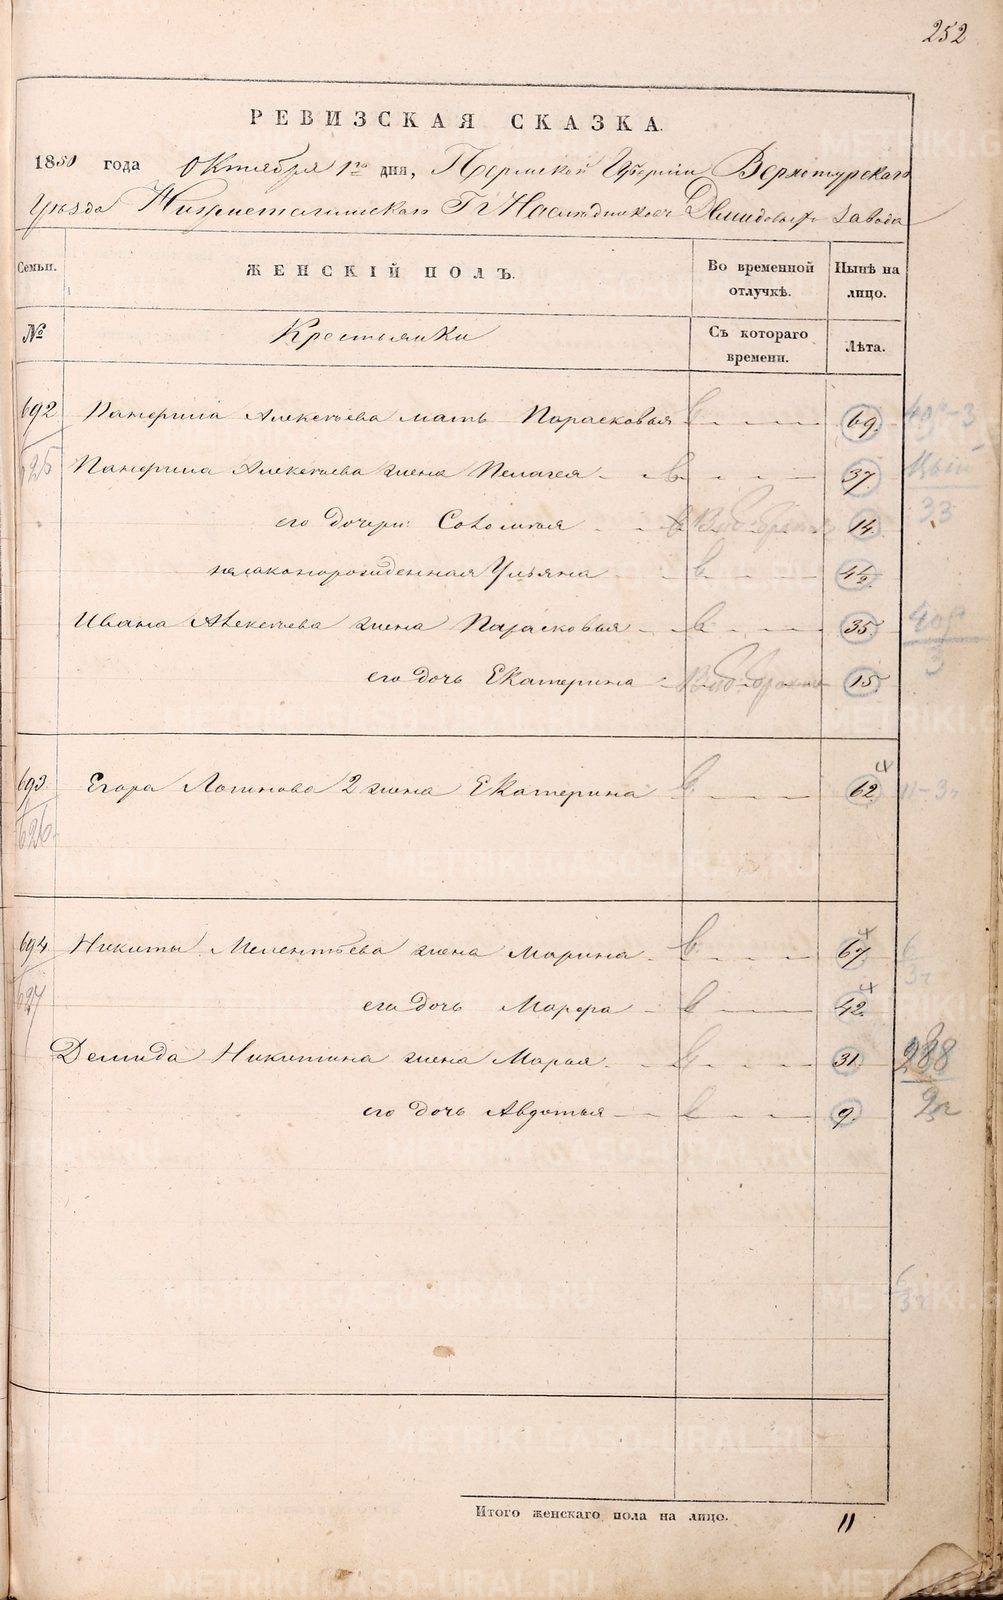 252
РЕВИЗСКАЯ СКАЗКА.
1850 года Октября 1го дня, Пермской Губернии Верхотурскаго
Уезда Нижнетагильскаго Гг Наследников Демидовых завода
Семьи. ЖЕНСКІЙ ПОЛЪ. Во временной отлучкѣ. Нынѣ на лицо.
№ Крестьянки Съ котораго времени. Лѣта.
692 Панфила Алексеева мать Парасковья 69.
625 Панфила Алексеева жена Пелагея 37.
его дочери: Соломия 14.
незаконорожденная Ульяна 4½
Ивана Алексеева жена Парасковья 35.
его дочь Екатерина 15
693 Егора Логинова 2 жена Екатерина 62.
626
694 Никиты Мелентьева жена Марина 67.
627 его дочь Марфа 42.
Демида Никитина жена Марья 31.
его дочь Авдотья 9.
Итого женскаго пола на лицо. 11
METRIKI.GASO-URAL.RU